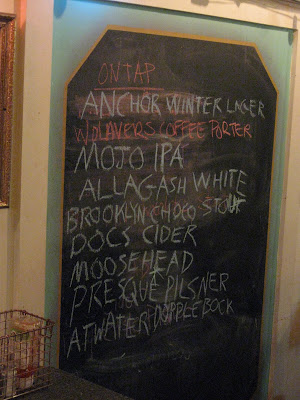 ON TAP
ANCHOR WINTER LAGER
WOLAVERS COFFEE PORTER
MOJO IPA
ALLAGASH WHITE
BROOKLYN CHOCO STOUT
DOCS CIDER
MOOSEHEAD
PRESQUE PILSNER
ATWATER DOPPLE BOCK